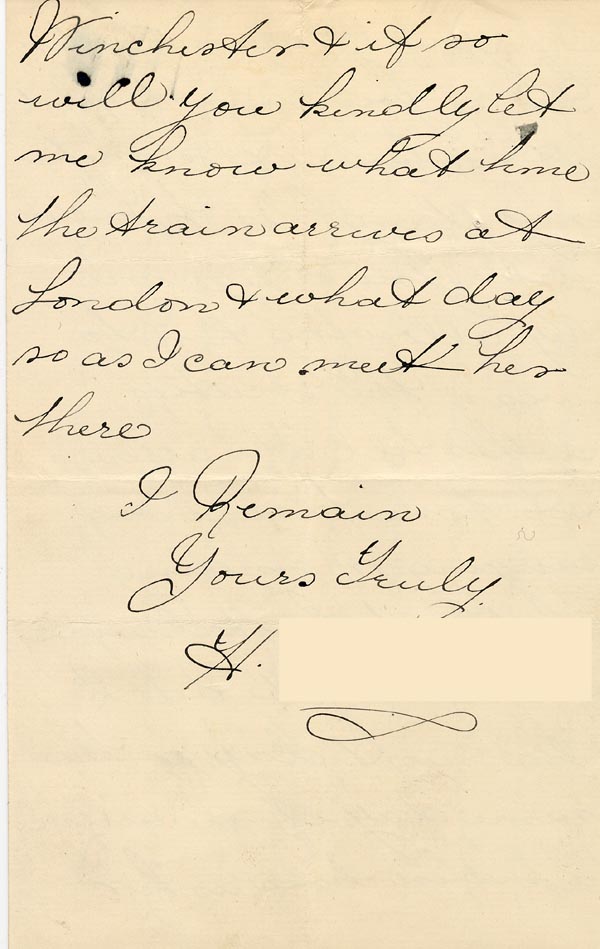 Winchester & if so
will you kindly let
me know what time
the train arrives at
London & what day
so as I can meet her
there
I Remain
Yours Truly
H.